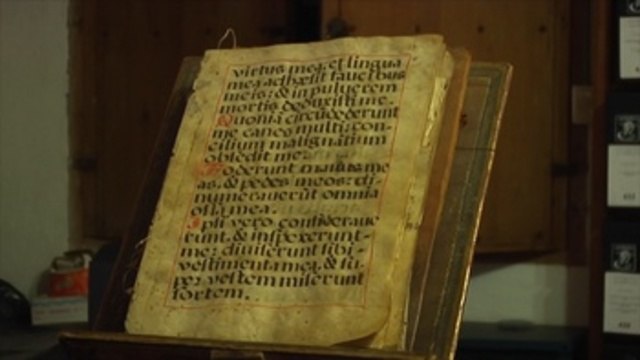 virtus mea, et lingua
mea adhæsit faucibus
meis: & in pulverem
mortis deduxisti me.
Quoniã circũdederunt
me canes multi: con-
cilium malignãtium
obsedit me.
Foderunt manus me
as, & pedes meos: di-
numeraverũt omnia
ossa mea.
Ipsi vero considerave
runt, & inspexerunt
me: diviserunt sibi
vestimenta mea, & su-
per vestem miserunt
sortem.